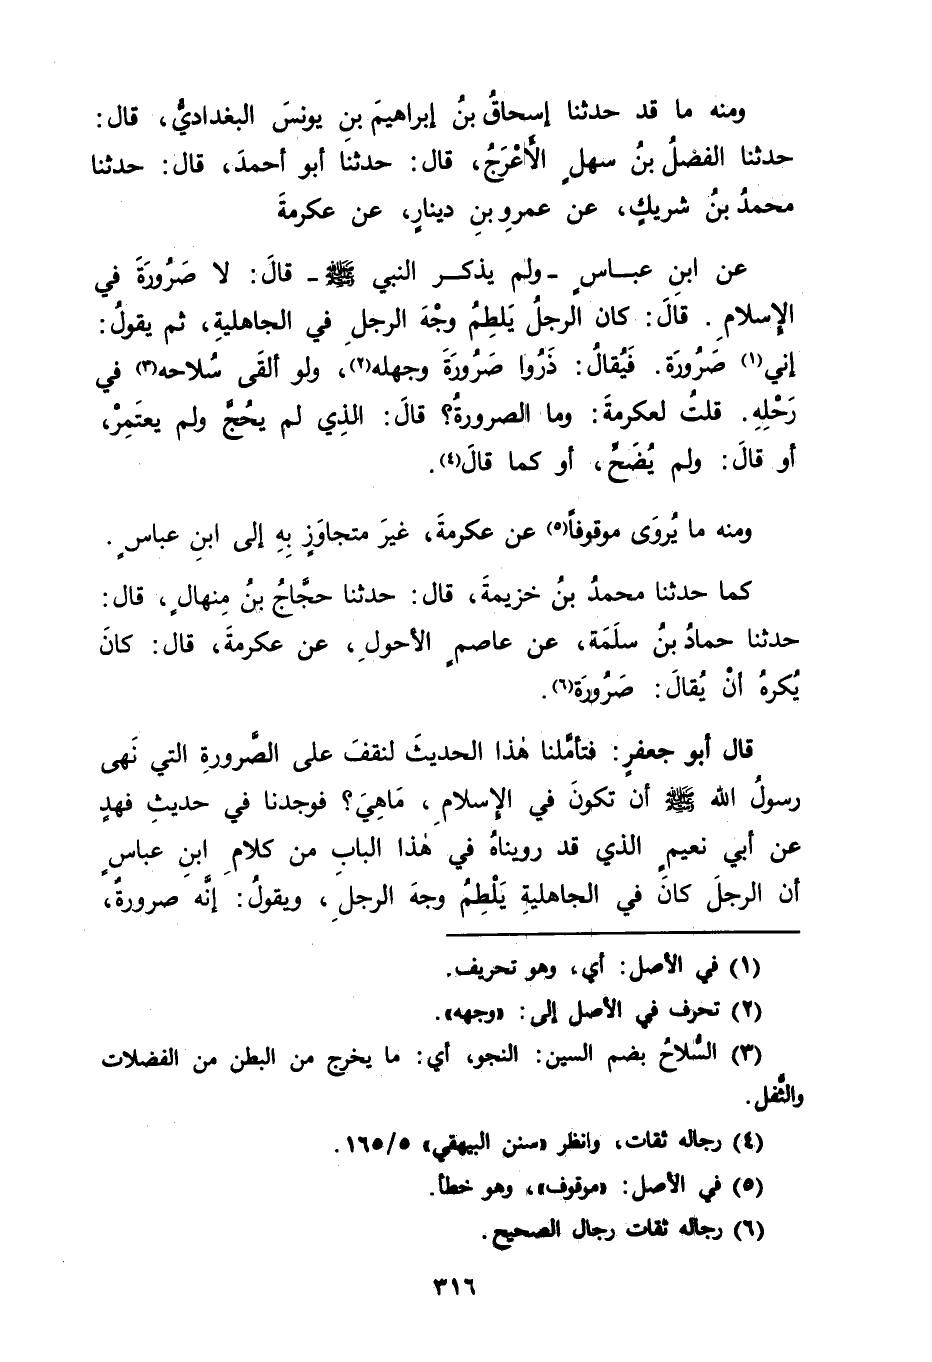 ومنه ما قد حدثنا إسحاقُ بنُ إبراهيمَ بنِ يونسَ البغداديُّ، قال:
حدثنا الفضلُ بنُ سهلٍ الأَعْرَجُ، قال: حدثنا أبو أحمدَ، قال: حدثنا
محمدُ بنُ شريكٍ، عن عمرِو بنِ دينارٍ، عن عكرمةَ
عن ابنِ عباسٍ ـ ولم يذكر النبي ﷺ ـ قالَ: لا صَرُورَةَ في
الإِسلامِ. قالَ: كان الرجلُ يَلطِمُ وجْهَ الرجلِ في الجاهليةِ، ثم يقولُ:
إني(١) صَرُورَة. فَيُقالُ: ذَرُوا صَرُورَةَ وجهله(٢)، ولو ألقَى سُلاحه(٣) في
رَحْلِهِ. قلتُ لعكرمةَ: وما الصرورةُ؟ قالَ: الذِي لم يحُجَّ ولم يعتَمِرْ،
أو قالَ: ولم يُضَحِّ، أو كما قالَ(٤).
ومنه ما يُروَى موقوفاً(٥) عن عكرمةَ، غيرَ متجاوَزٍ بِهِ إلى ابنِ عباسٍ.
كما حدثنا محمدُ بنُ خزيمةَ، قال: حدثنا حجَّاجُ بنُ مِنهالٍ، قال:
حدثنا حمادُ بنُ سلَمَة، عن عاصمٍ الأحولِ، عن عكرمةَ، قال: كانَ
يُكرهُ أنْ يُقالَ: صَرُورَة(٦).
قال أبو جعفرٍ: فتأمَّلنا هٰذا الحديثَ لنقفَ على الصَّرورةِ التي نَهى
رسولُ الله ﷺ أن تكونَ في الإِسلامِ، مَاهِيَ؟ فوجدنا في حديثِ فهدٍ
عن أبي نعيمٍ الذي قد رويناهُ في هٰذا البابِ من كلامِ ابنِ عباسٍ
أن الرجلَ كانَ في الجاهليةِ يَلْطِمُ وجهَ الرجلِ، ويقولُ: إنَّه صرورةٌ،
(١) في الأصل: أي، وهو تحريف.
(٢) تحرف في الأصل إلى: «وجهه».
(٣) السُّلاحُ بضم السين: النجو، أي: ما يخرج من البطن من الفضلات
والثُّفل.
(٤) رجاله ثقات، وانظر «سنن البيهقي» ١٦٥/٥.
(٥) في الأصل: «موقوف»، وهو خطأ.
(٦) رجاله ثقات رجال الصحيح.
٣١٦